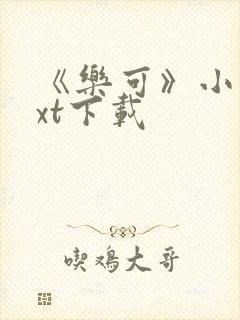 《樂可》小
xt下載
喫鳮大哥